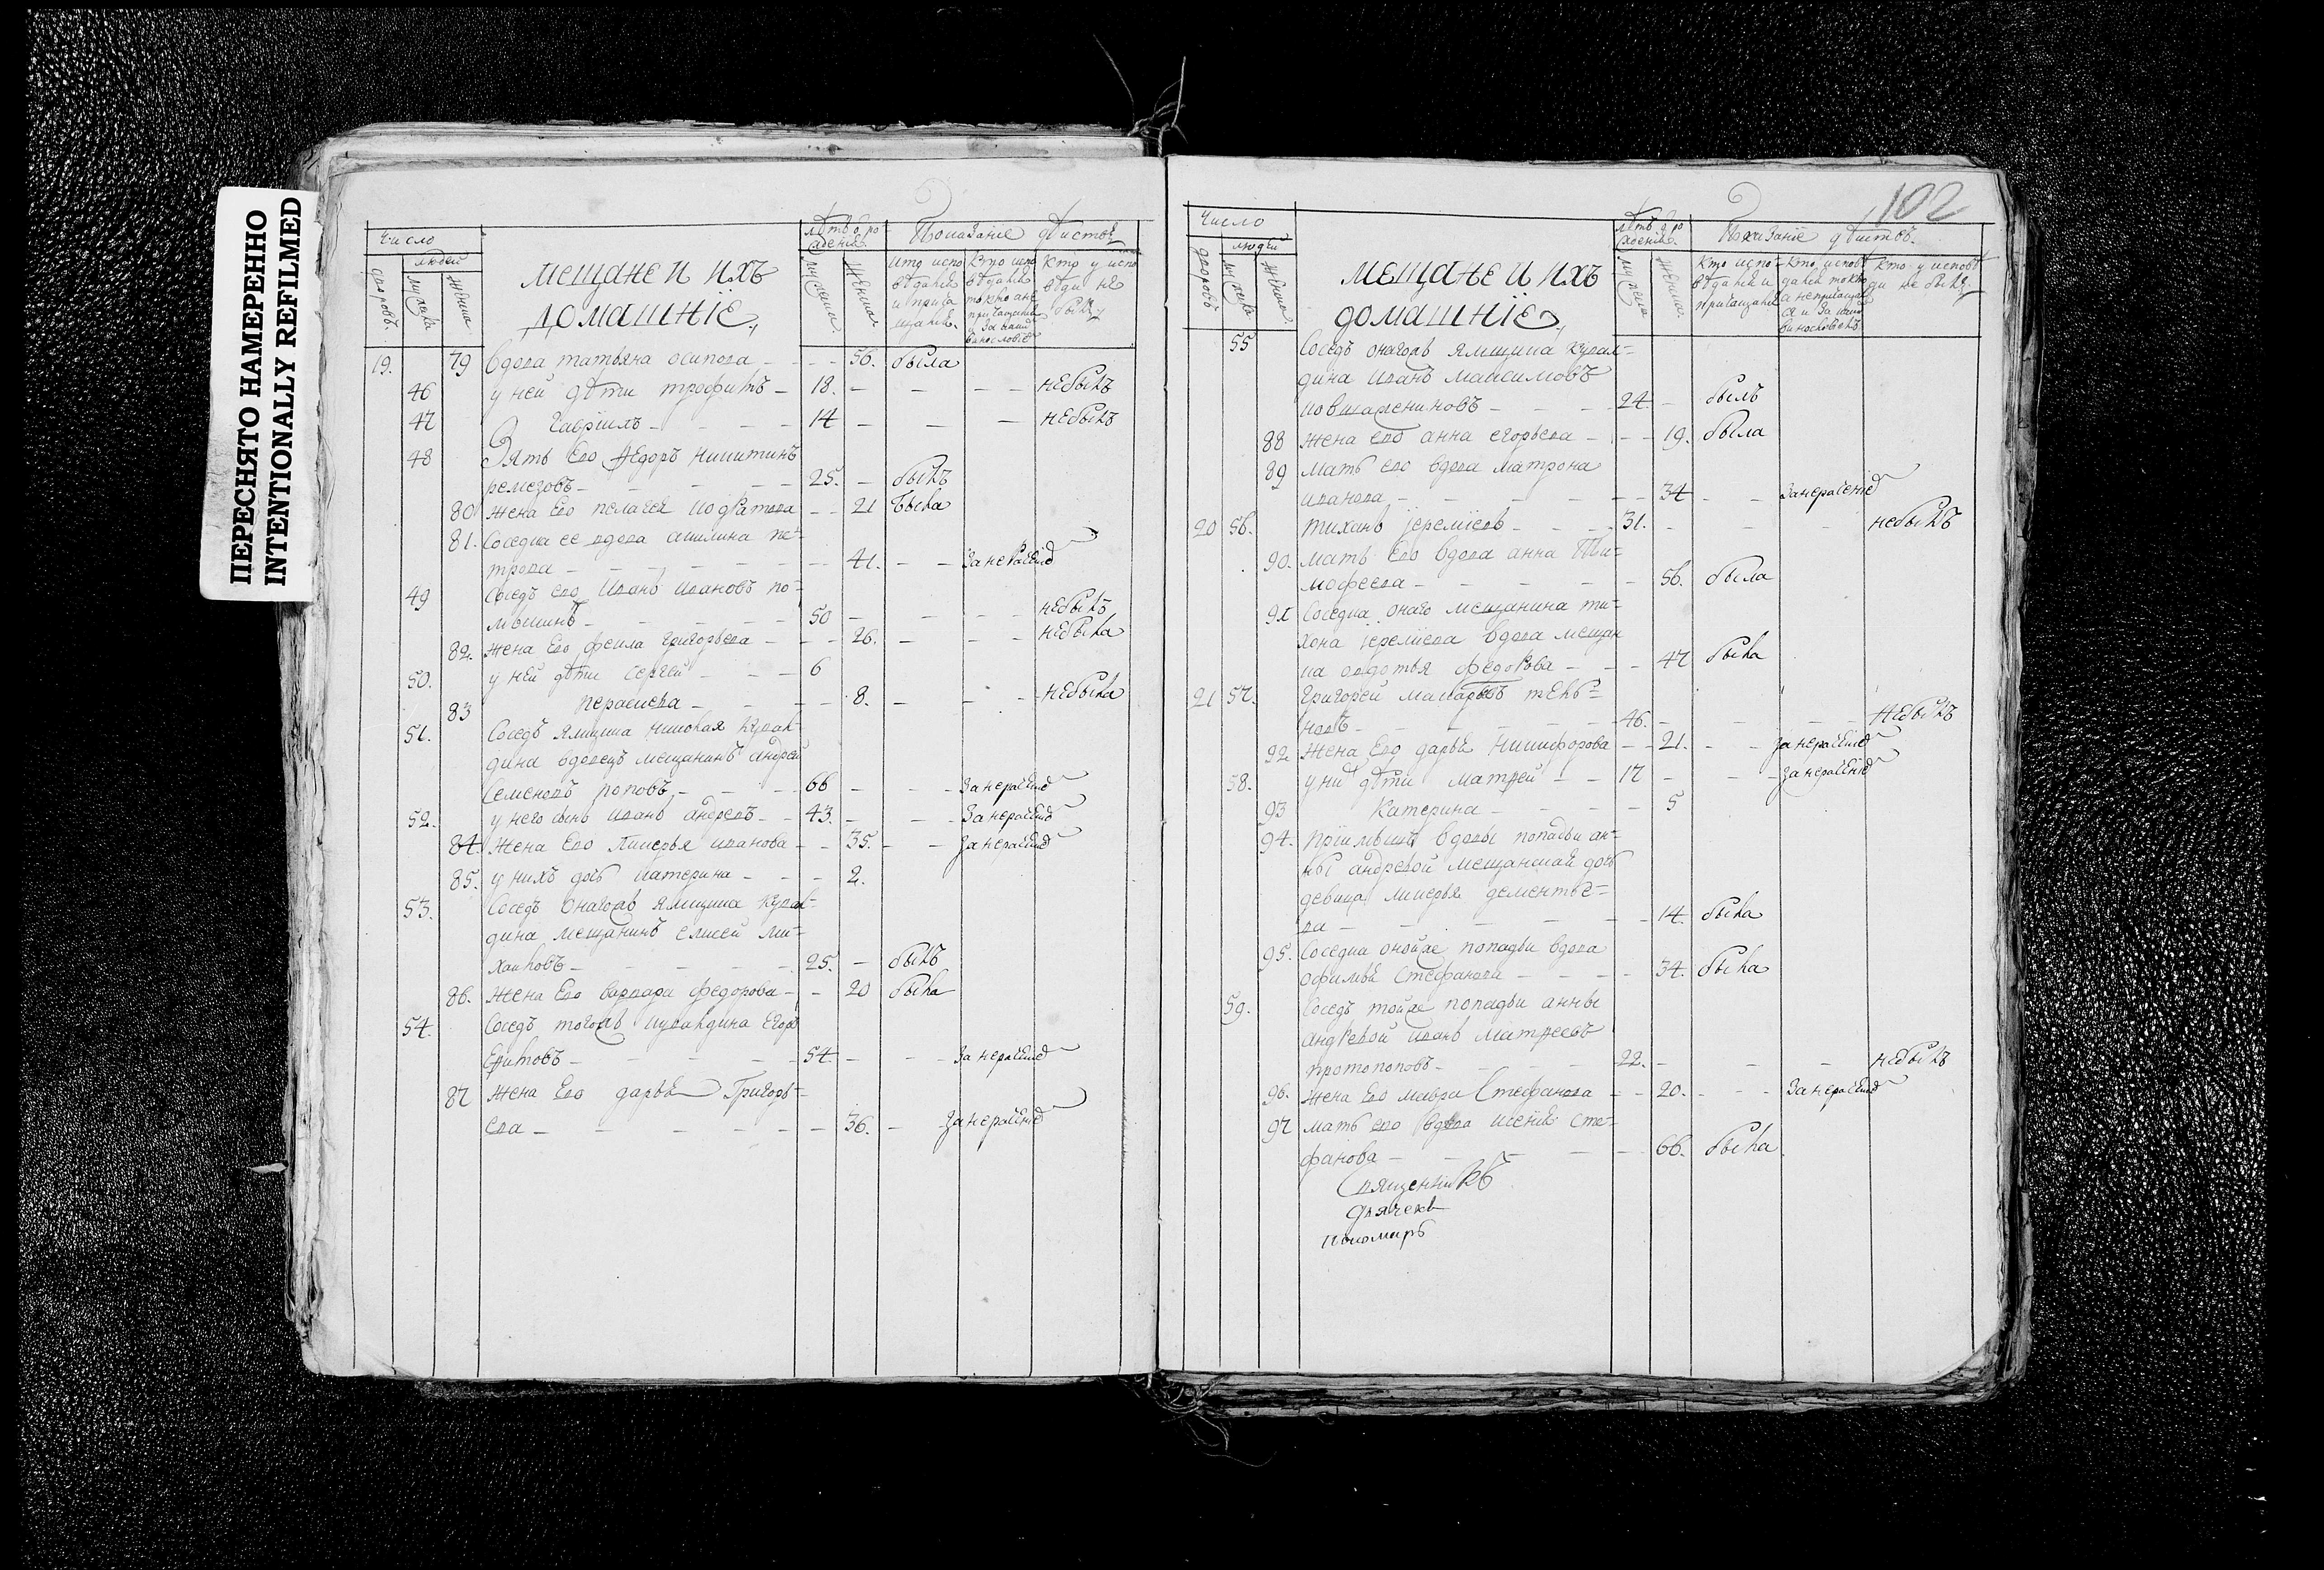 ПЕРЕСНЯТО НАМЕРЕННО
INTENTIONALLY REFILMED
Число
людей
дворовъ.
мужеска
женска
мещане и ихъ
домашнїе
лѣтъ от ро
жденїя
мужеска
женска
Показанїе дѣйствъ
Кто испо
вѣдался
и прича
щался.
Кто испо
вѣдался
токмо а не
причащался
и за каки
винословіе
Кто у испо
вѣди не
былъ
19. 79 Вдова татьяна осипова 56. была
46 у ней дѣти трофимъ 18. небылъ
47 гавріилъ 14 небылъ
48 Зять Его Ѳедоръ никитинъ
ремезовъ 25. былъ
80 жена Его пелагея 21 была
81. Соседка ее вдова акилина пе-
трова 41. Занерасенїе
49 Соседъ его Иванъ ивановъ по-
50 небылъ
82. жена Его фекла григорьева 26. небыла
50. у ней дѣти Сергей 6
83 8. небыла
51. Соседъ Ямщика николая
дина вдовецъ мещанинъ андрей
Семеновъ поповъ 66 Занерасенїе
52. у него сынъ иванъ андреевъ 43. Занерасенїе
84. жена Его ликерья иванова 35. Занерасенїе
85. у нихъ дочь катерина 2.
53. Соседъ онагожъ Ямщика
дина мещанинъ елисей ми-
хайловъ 25. былъ
86. жена Его варвара федорова 20 была
54. Соседъ тогожъ Егоръ
54 Занерасенїе
87 жена Его дарья Григорь-
ева 36. Занерасенїе
102
Число
людей
дворовъ
мужеска
женска
мещане и ихъ
домашнїе
лѣтъ от ро
жденїя.
мужеска
женска
Показанїе дѣйствъ.
Кто испо-
вѣдался и
причащался
Кто исповѣ
дался токмо
а непричащал
ся и за каки
винословіемъ
Кто у исповѣ
ди не былъ
55 Соседъ онагожъ Ямщика
дина иванъ максимовъ
24 былъ
88 жена его анна егорьева 19. была
89 мать его вдова матрона
иванова 34 Занерасенїе
20 56. тиханъ їеремїевъ 31. небылъ
90. мать Его вдова анна Ти-
мофеева 56. была
91 Соседка онаго мещанина ти-
хона їеремїева вдова мещан
ка авдотья федорова 47 была
21 57. Григорей макаровъ
46. Небылъ
92 жена Его дарья никифорова 21. Занерасенїе
58. у них дѣти матвей 17 Занерасенїе
93 Катерина 5
94. вдовы попадьи ан-
ны андревой мещанская дочь
девица ликерья дементье-
ва 14 была
95. Соседка онойже попадьи вдова
офимья Стефанова 34. была
59. Соседъ тойже попадьи анны
андревой иванъ матвеевъ
протопоповъ 22. небылъ
96. жена Его мавра Стефанова 20. Занерасенїе
97 мать его вдова ксенія сте-
фанова 66. была
Священникъ
дьячекъ
пономарь